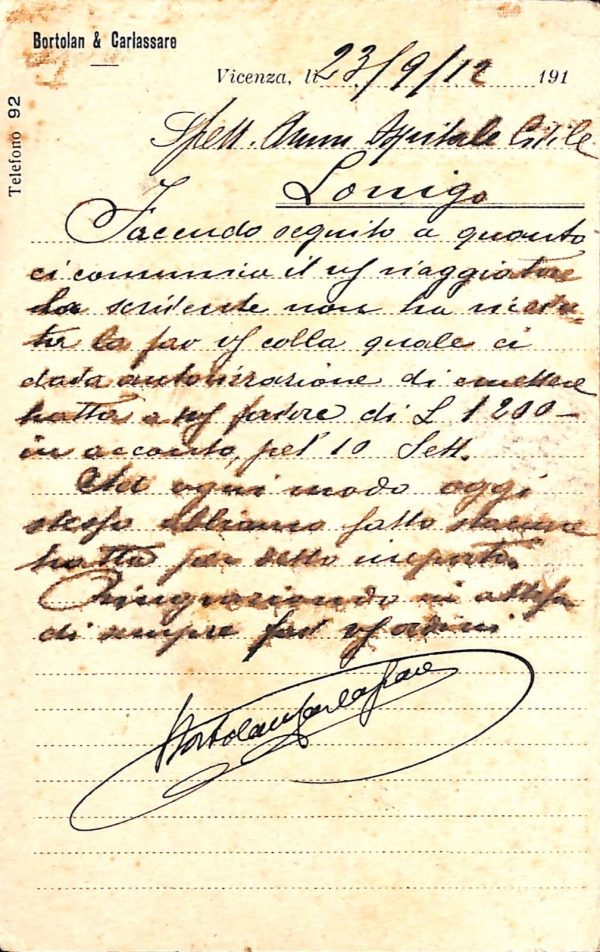 Bortolan & Carlassare
Telefono 92
Vicenza, li 23/9/12 191
Spett. Amm Ospitale Civile
Lonigo
Facendo seguito a quanto
ci comunica il ns viaggiatore
la scrivente non ha ricevu-
ta la fav vs colla quale ci
dava autorizzazione di emettere
tratta a ns favore di £ 1200 -
in acconto, pel 10 Sett.
Ad ogni modo oggi
stesso abbiamo fatto staccare
tratta per detto importo.
Ringraziando in attesa
di sempre fav vs ordini
Bortolan Carlassare